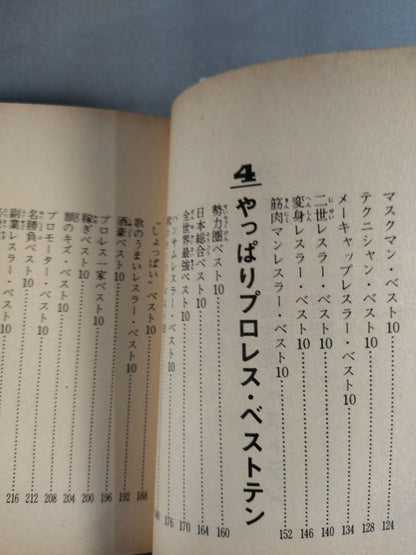 マスクマン・ベスト10……124
テクニシャン・ベスト10……128
メーキャップレスラー・ベスト10……134
二世レスラー・ベスト10……140
変身レスラー・ベスト10……146
筋肉マンレスラー・ベスト10……152
4 やっぱりプロレス・ベストテン
勢力圏ベスト10……160
日本総合ベスト10……164
全世界最強ベスト10……170
ハンサムレスラー・ベスト10……176
"しょっぱい"ベスト10……
歌のうまいレスラー・ベスト10……188
酒豪ベスト10……192
プロレス一家ベスト10……196
稼ぎベスト10……200
顔のキズ・ベスト10……204
プロモーター・ベスト10……208
名勝負ベスト10……212
副業レスラー・ベスト10……216